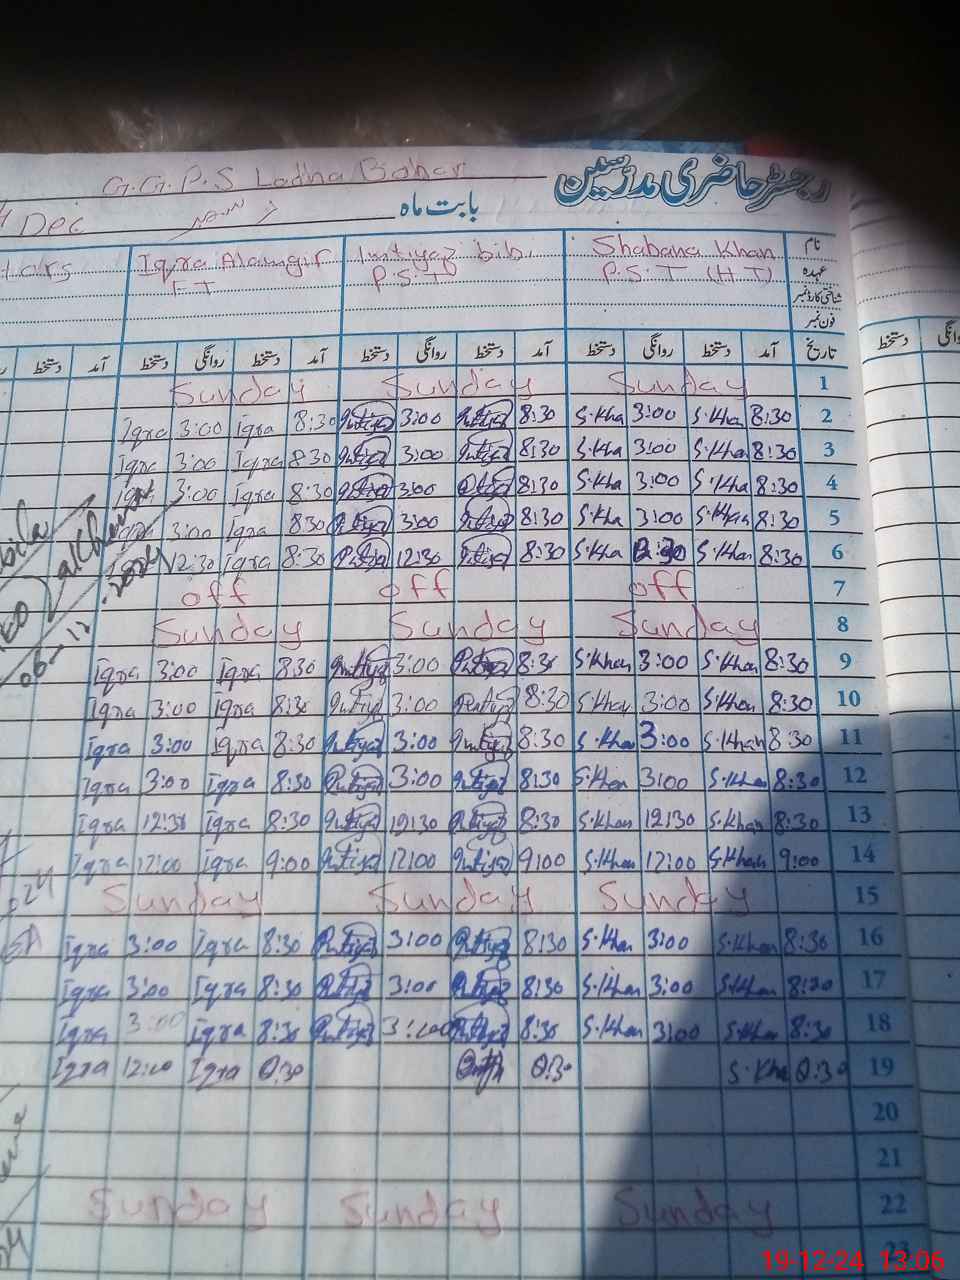 رجسٹر حاضری مدرسین
G.G.P.S Lodha Bahar
بابت ماہ دسمبر Dec
نام Shabana Khan Imtiyaz bibi Iqra Alamgir
عہدہ P.S.T (H.T) P.S.T
شناختی کارڈ نمبر
فون نمبر
تاریخ آمد دستخط روانگی دستخط آمد دستخط روانگی دستخط آمد دستخط روانگی دستخط آمد دستخط
دستخط
1 Sunday Sunday Sunday
2 8:30 S.Kha 3:00 S.Kha 8:30 Imtiyaz 3:00 Imtiyaz 8:30 Iqra 3:00 Iqra
3 8:30 S.Khan 3:00 S.Kha 8:30 Imtiyaz 3:00 Imtiyaz 8:30 Iqra 3:00 Iqra
4 8:30 S.Kha 3:00 S.Kha 8:30 Imtiyaz 3:00 Imtiyaz 8:30 Iqra 3:00 Iqra
5 8:30 S.Khan 3:00 S.Kha 8:30 Imtiyaz 3:00 Imtiyaz 8:30 Iqra 3:00
6 8:30 S.Khan 8:30 Imtiyaz 12:30 Imtiyaz 8:30 Iqra 12:30
7 off off off
8 Sunday Sunday Sunday
9 8:30 S.Khan 3:00 S.Khan 8:30 Imtiyaz 3:00 Imtiyaz 8:30 Iqra 3:00 Iqra
10 8:30 S.Khan 3:00 S.Khan 8:30 Imtiyaz 3:00 Imtiyaz 8:30 Iqra 3:00 Iqra
11 8:30 S.Khan 3:00 S.Khan 8:30 Imtiyaz 3:00 Imtiyaz 8:30 Iqra 3:00 Iqra
12 8:30 S.Khan 3:00 S.Khan 8:30 Imtiyaz 3:00 Imtiyaz 8:30 Iqra 3:00 Iqra
13 8:30 S.Khan 12:30 S.Khan 8:30 Imtiyaz 12:30 Imtiyaz 8:30 Iqra 12:30 Iqra
14 9:00 S.Khan 12:00 S.Khan 9:00 Imtiyaz 12:00 Imtiyaz 9:00 Iqra 12:00 Iqra
15 Sunday Sunday Sunday
16 8:30 S.Khan 3:00 S.Khan 8:30 Imtiyaz 3:00 Imtiyaz 8:30 Iqra 3:00 Iqra
17 8:30 S.Khan 3:00 S.Khan 8:30 Imtiyaz 3:00 Imtiyaz 8:30 Iqra 3:00 Iqra
18 8:30 S.Khan 3:00 S.Khan 8:30 Imtiyaz 3:00 Imtiyaz 8:30 Iqra 3:00 Iqra
19 8:30 S.Kha 8:30 8:30 Iqra 12:00 Iqra
20
21
22 Sunday Sunday Sunday
23
19-12-24 13:06